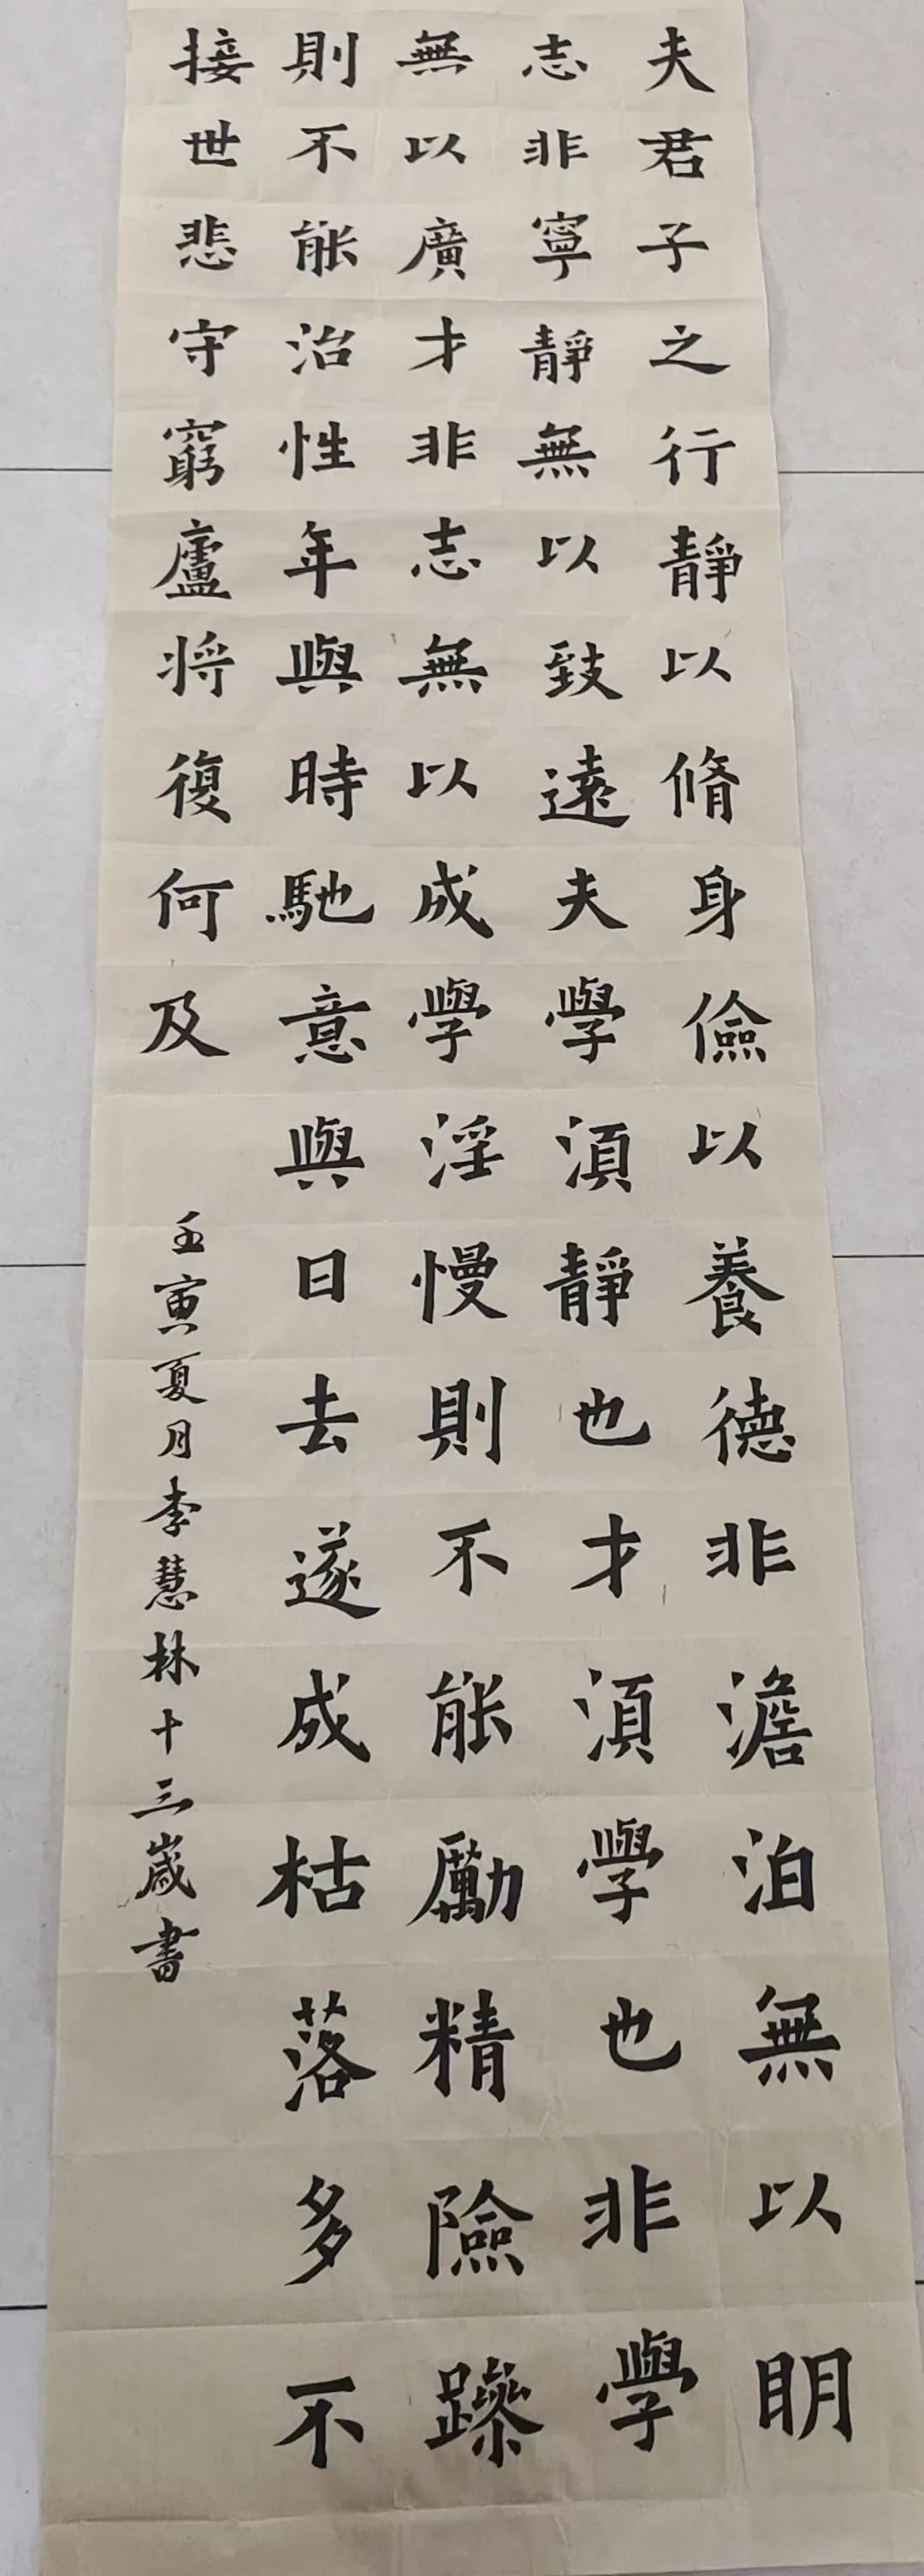 夫君子之行靜以脩身儉以養德非澹泊無以明
志非寧靜無以致遠夫學須靜也才須學也非學
無以廣才非志無以成學淫慢則不能勵精險躁
則不能治性年與時馳意與日去遂成枯落多不
接世悲守窮廬將復何及
壬寅夏月李慧林十三歲書